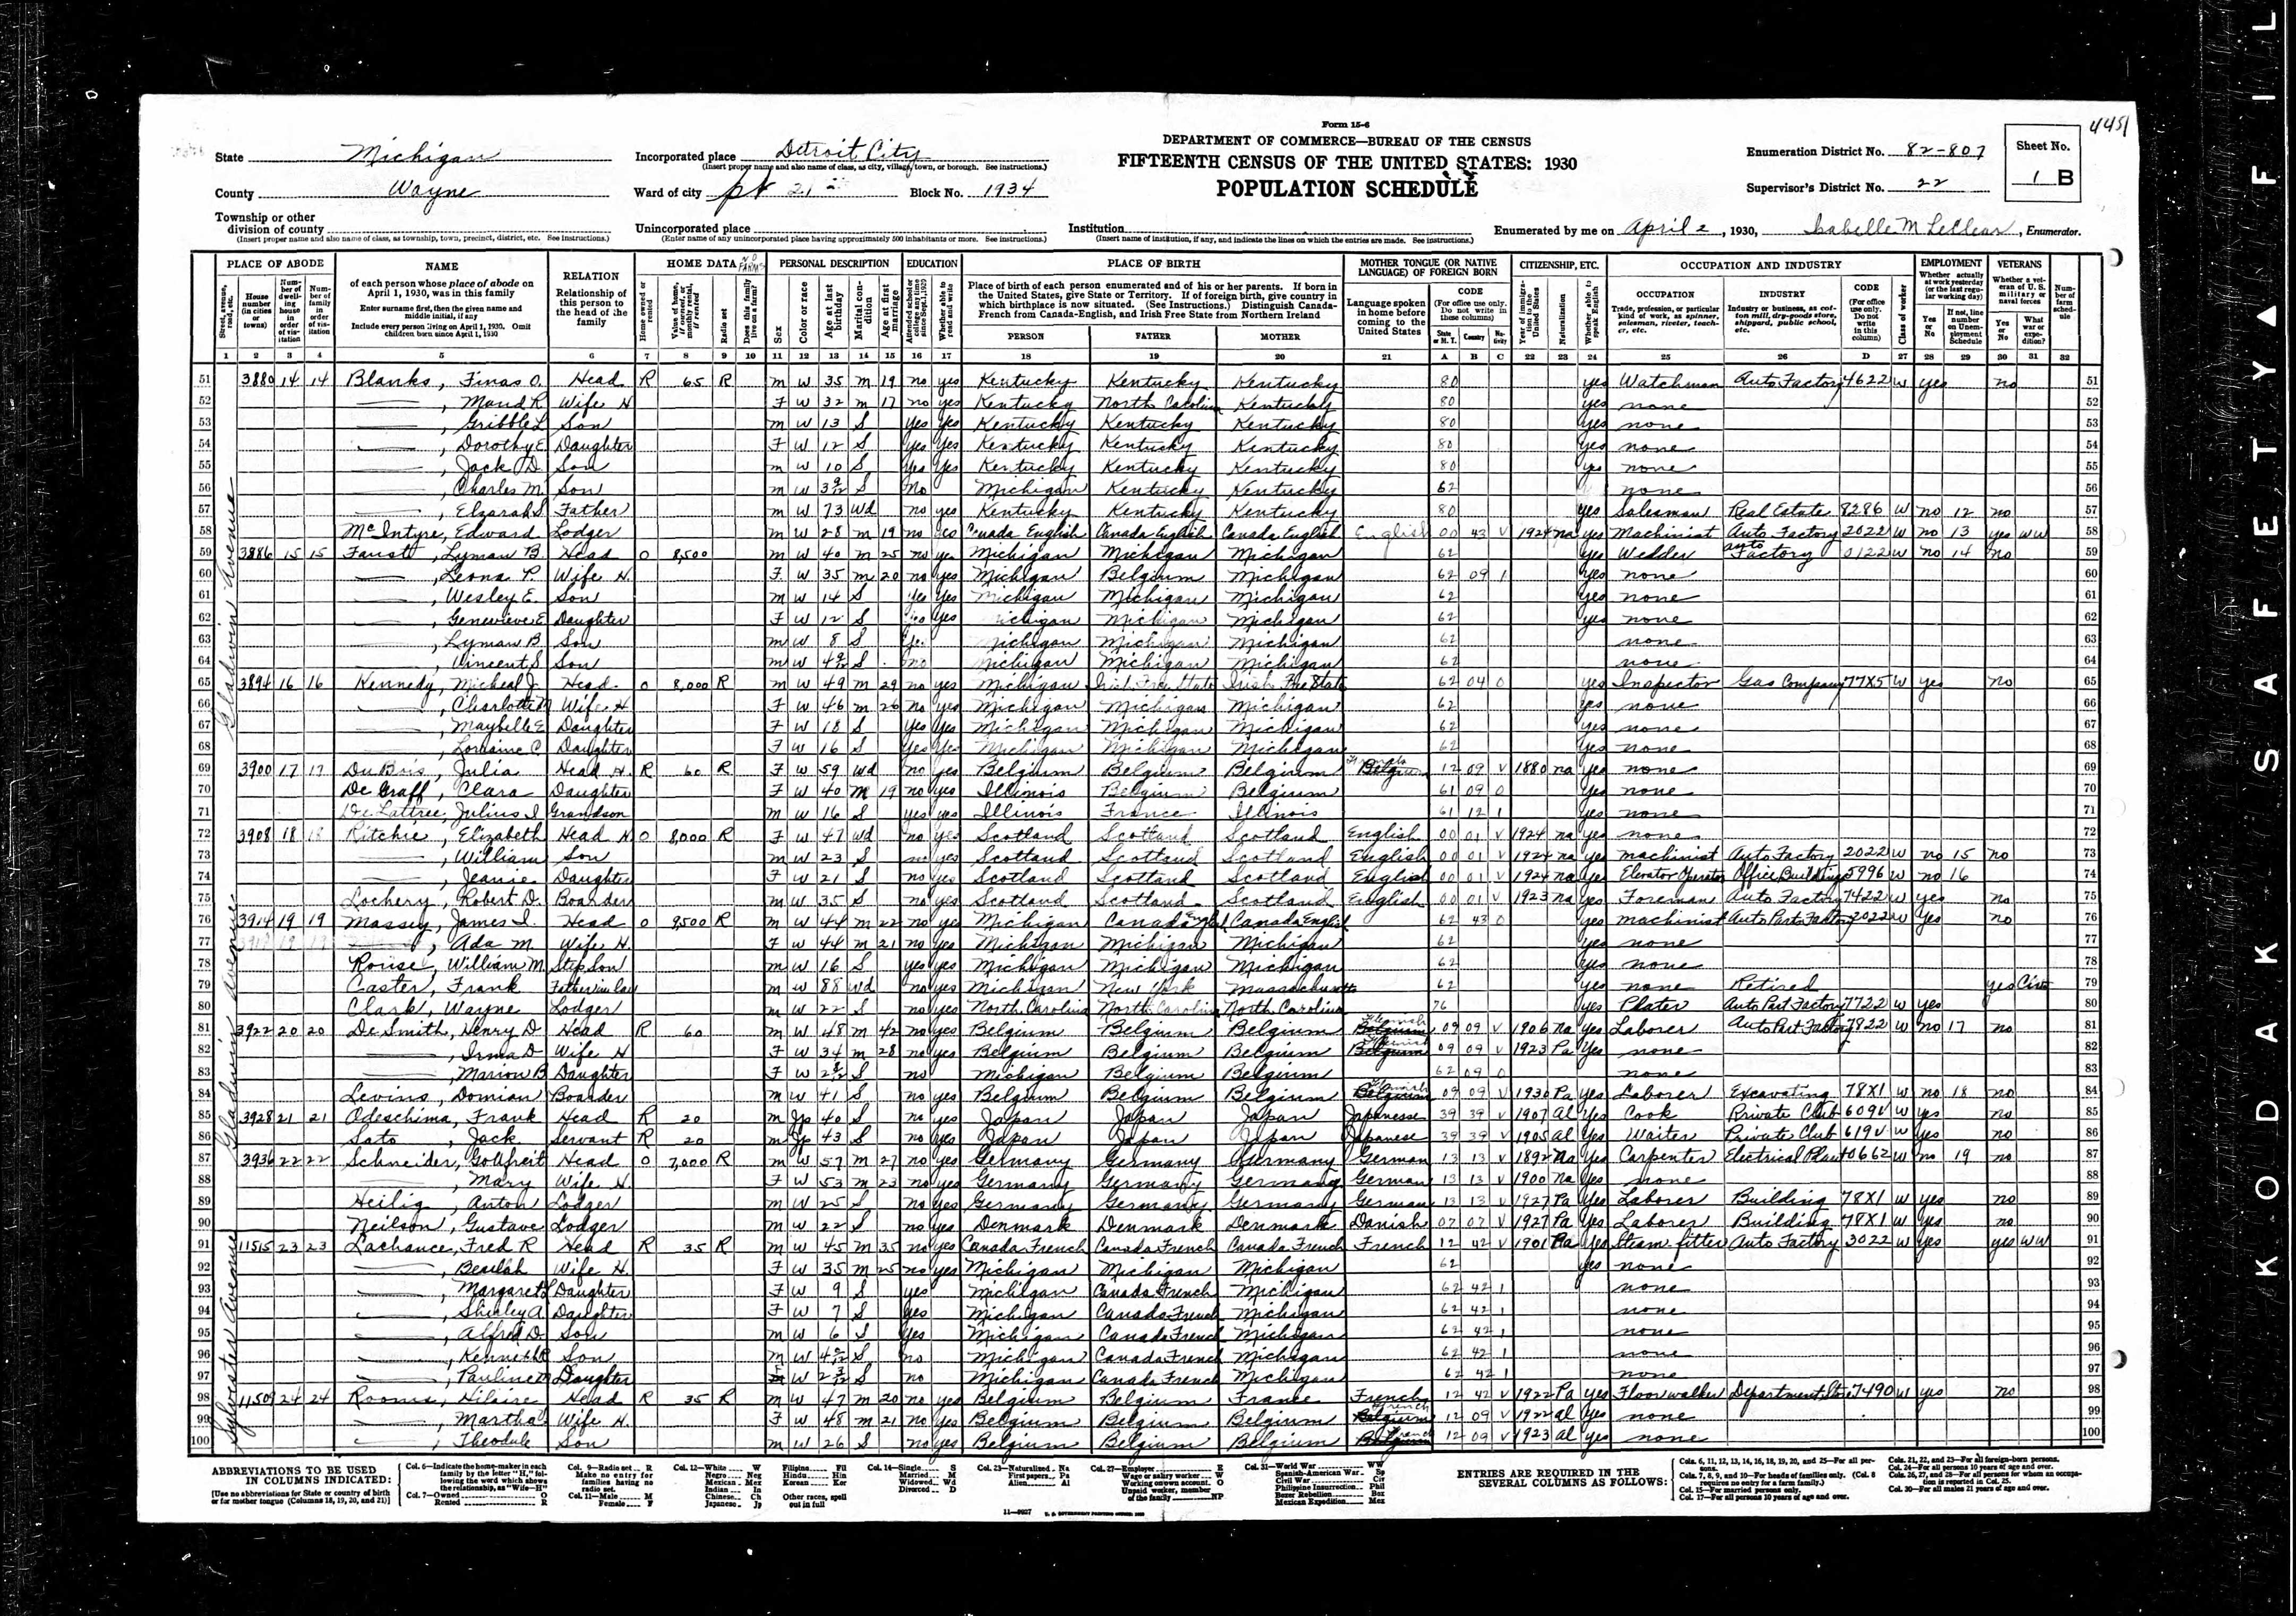 4451
Form 15-6
DEPARTMENT OF COMMERCE—BUREAU OF THE CENSUS
FIFTEENTH CENSUS OF THE UNITED STATES: 1930
POPULATION SCHEDULE
State Michigan
County Wayne
Township or other division of county
(Insert proper name and also name of class, as township, town, precinct, district, etc. See instructions.)
Incorporated place Detroit City
(Insert proper name and also name of class, as city, village, town, or borough. See instructions.)
Ward of city pt 21 Block No. 1934
Unincorporated place
(Enter name of any unincorporated place having approximately 500 inhabitants or more. See instructions.)
Institution
(Insert name of institution, if any, and indicate the lines on which the entries are made. See instructions.)
Enumeration District No. 82-807
Supervisor's District No. 22
Sheet No. 1 B
Enumerated by me on April 2, 1930, Isabelle M LeClear, Enumerator.
PLACE OF ABODE NAME RELATION HOME DATA PERSONAL DESCRIPTION EDUCATION PLACE OF BIRTH MOTHER TONGUE (OR NATIVE LANGUAGE) OF FOREIGN BORN CITIZENSHIP, ETC. OCCUPATION AND INDUSTRY EMPLOYMENT VETERANS
1 2 3 4 5 6 7 8 9 10 11 12 13 14 15 16 17 18 19 20 21 A B C 22 23 24 25 26 D 27 28 29 30 31 32
Gladwin Avenue
51 3880 14 14 Blanks, Finas O. Head R 65 R m W 35 m 19 no yes Kentucky Kentucky Kentucky 80 yes Watchman Auto Factory 4622 W yes no 51
52 , Maud R Wife H F W 32 m 17 no yes Kentucky North Carolina Kentucky 80 yes none 52
53 , Gribble L Son m W 13 S yes yes Kentucky Kentucky Kentucky 80 yes none 53
54 , Dorothy E Daughter F W 12 S yes yes Kentucky Kentucky Kentucky 80 yes none 54
55 , Jack D Son m W 10 S yes yes Kentucky Kentucky Kentucky 80 yes none 55
56 , Charles M. Son m W 3 9/12 S no Michigan Kentucky Kentucky 62 none 56
57 , Elzarah S Father m W 73 Wd no yes Kentucky Kentucky Kentucky 80 yes Salesman Real Estate 8286 W no 12 no 57
58 McIntyre, Edward Lodger m W 28 m 19 no yes Canada English Canada English Canada English English 00 43 V 1924 na yes Machinist Auto Factory 2022 W no 13 yes WW 58
59 3886 15 15 Faust, Lyman B. Head O 8,500 m W 40 m 25 no yes Michigan Michigan Michigan 62 yes Welder Auto Factory 0122 W no 14 no 59
60 , Leona P. Wife H. F W 35 m 20 no yes Michigan Belgium Michigan 62 09 1 yes none 60
61 , Wesley E. Son m W 14 S yes yes Michigan Michigan Michigan 62 yes none 61
62 , Genevieve E Daughter F W 12 S yes yes Michigan Michigan Michigan 62 yes none 62
63 , Lyman B. Son m W 8 S yes Michigan Michigan Michigan 62 none 63
64 , Vincent S Son m W 4 S no Michigan Michigan Michigan 62 none 64
65 3894 16 16 Kennedy, Micheal J. Head O 8,000 R m W 49 m 29 no yes Michigan Irish Free State Irish Free State 62 04 0 yes Inspector Gas Company 77X5 W yes no 65
66 , Charlotte M Wife H F W 46 m 26 no yes Michigan Michigan Michigan 62 yes none 66
67 , Maybelle E Daughter F W 18 S yes yes Michigan Michigan Michigan 62 yes none 67
68 , Lorraine C Daughter F W 16 S yes yes Michigan Michigan Michigan 62 yes none 68
69 3900 17 17 DuBois, Julia Head H R 60 R F W 59 Wd no yes Belgium Belgium Belgium Belgium 12 09 V 1880 na yes none 69
70 De Graff, Clara Daughter F W 40 M 19 no yes Illinois Belgium Belgium 61 09 0 yes none 70
71 De Lattree, Julius I Grandson m W 16 S yes yes Illinois France Illinois 61 12 1 yes none 71
72 3908 18 18 Ritchie, Elizabeth Head H O 8,000 R F W 47 Wd no yes Scotland Scotland Scotland English 00 01 V 1924 na yes none 72
73 , William Son m W 23 S no yes Scotland Scotland Scotland English 00 01 V 1924 na yes machinist Auto Factory 2022 W no 15 no 73
74 , Jeanie Daughter F W 21 S no yes Scotland Scotland Scotland English 00 01 V 1924 na yes Elevator Operator Office Building 5996 W no 16 74
75 Lochery, Robert D. Boarder m W 35 S no yes Scotland Scotland Scotland English 00 01 V 1923 na yes Foreman Auto Factory 7422 W yes no 75
Gladwin Avenue
76 3914 19 19 Massey, James I. Head O 9,500 R m W 44 m 22 no yes Michigan Canada English Canada English 62 43 0 yes machinist Auto Part Factory 2022 W yes no 76
77 , Ada M. Wife H. F W 44 m 21 no yes Michigan Michigan Michigan 62 yes none 77
78 Rouse, William M Step Son m W 16 S yes yes Michigan Michigan Michigan 62 yes none 78
79 Caster, Frank Father in law m W 88 Wd no yes Michigan New York Massachusetts 62 yes none Retired yes Civ 79
80 Clark, Wayne Lodger m W 22 S no yes North Carolina North Carolina North Carolina 76 yes Plater Auto Part Factory 7722 W yes 80
81 3922 20 20 De Smith, Henry D Head R 60 m W 48 m 42 no yes Belgium Belgium Belgium Flemish Belgium 09 09 V 1906 na yes Laborer Auto Part Factory 7822 W no 17 no 81
82 , Irma D Wife H F W 34 m 28 no yes Belgium Belgium Belgium Flemish Belgium 09 09 V 1923 Pa yes none 82
83 , Marion B Daughter F W 2 S no Michigan Belgium Belgium 62 09 0 none 83
84 Levins, Domian Boarder m W 41 S no yes Belgium Belgium Belgium Flemish Belgium 09 09 V 1930 Pa yes Laborer Excavating 78X1 W no 18 no 84
85 3928 21 21 Odeschima, Frank Head R 20 m Jp 40 S no yes Japan Japan Japan Japanese 39 39 V 1907 Al yes Cook Private Club 609V W yes no 85
86 Sato, Jack Servant R 20 m Jp 43 S no yes Japan Japan Japan Japanese 39 39 V 1905 Al yes Waiter Private Club 619V W yes no 86
87 3936 22 22 Schneider, Gottfreit Head O 7,000 R m W 57 m 27 no yes Germany Germany Germany German 13 13 V 1892 Na yes Carpenter Electrical Plant 0662 W no 19 no 87
88 , Mary Wife H. F W 53 m 23 no yes Germany Germany Germany German 13 13 V 1900 Na yes none 88
89 Heilig, Anton Lodger m W 25 S no yes Germany Germany Germany German 13 13 V 1927 Pa yes Laborer Building 78X1 W yes no 89
90 Neilson, Gustave Lodger m W 22 S no yes Denmark Denmark Denmark Danish 07 07 V 1927 Pa yes Laborer Building 78X1 W yes no 90
Sylvester Avenue
91 11515 23 23 Lachance, Fred R Head R 35 R m W 45 m 35 no yes Canada French Canada French Canada French French 12 42 V 1901 Pa yes Steam fitter Auto Factory 3022 W yes yes WW 91
92 , Beulah Wife H. F W 35 m 25 no yes Michigan Michigan Michigan 62 yes none 92
93 , Margaret L Daughter F W 9 S yes Michigan Canada French Michigan 62 42 1 none 93
94 , Shirley A Daughter F W 7 S yes Michigan Canada French Michigan 62 42 1 none 94
95 , Alfred D Son m W 6 S yes Michigan Canada French Michigan 62 42 1 none 95
96 , Kenneth R Son m W 4 S no Michigan Canada French Michigan 62 42 1 none 96
97 , Pauline M Daughter F W 2 S no Michigan Canada French Michigan 62 42 1 none 97
98 11509 24 24 Rooms, Hilaire Head R 35 R m W 47 m 20 no yes Belgium Belgium France French 12 42 V 1922 Pa yes Floorwalker Department Store 7490 W yes no 98
99 , Martha Wife H. F W 48 m 21 no yes Belgium Belgium Belgium French Belgium 12 09 V 1922 al yes none 99
100 , Theodule Son m W 26 S no yes Belgium Belgium Belgium French Belgium 12 09 V 1923 al yes none 100
ABBREVIATIONS TO BE USED IN COLUMNS INDICATED:
[Use no abbreviations for State or country of birth or for mother tongue (Columns 18, 19, 20, and 21)]
ENTRIES ARE REQUIRED IN THE SEVERAL COLUMNS AS FOLLOWS:
KODAK SAFETY FIL